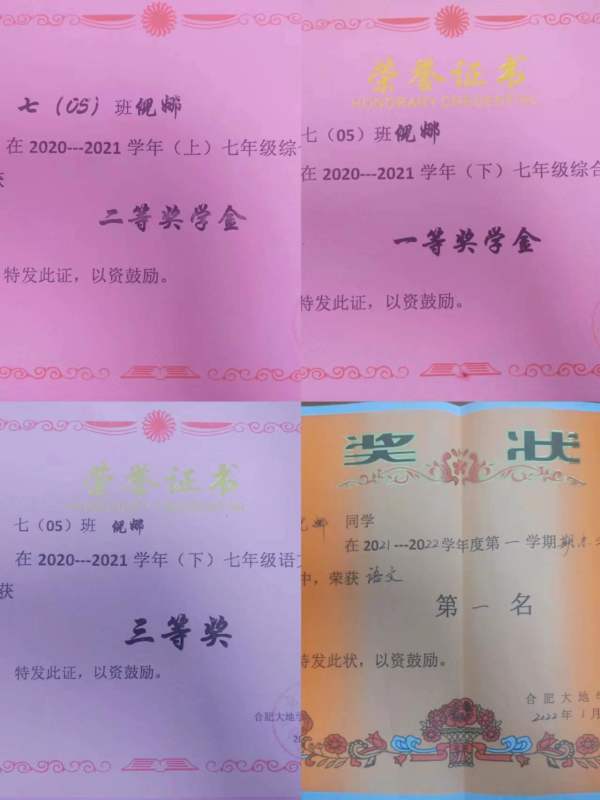 七（05）班 倪娜
在 2020---2021 学年（上）七年级综
二等奖学金
特发此证，以资鼓励。
荣誉证书
HONORARY CREDENTIAL
七（05）班 倪娜
在 2020---2021 学年（下）七年级综合
一等奖学金
特发此证，以资鼓励。
荣誉证书
HONORARY CREDENTIAL
七（05）班 倪娜
在 2020---2021 学年（下）七年级语
获
三等奖
特发此证，以资鼓励。
合肥大地学
奖状
娜 同学
在 2021---2022 学年度第一学期期末
中，荣获 语文
第一名
特发此状，以资鼓励。
合肥大地学
2022年1月